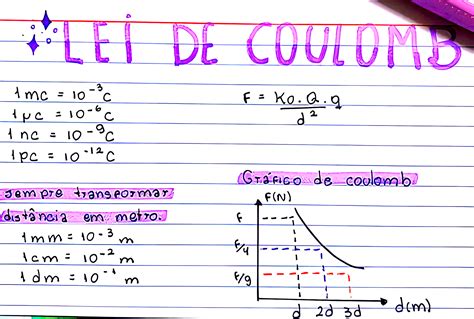 LEI DE COULOMB
1 mc = 10⁻³C
1 μc = 10⁻⁶C
1 nc = 10⁻⁹C
1 pc = 10⁻¹²C
F = Ko.Q.q
d²
sempre transformar
distância em metro.
1 mm = 10⁻³ m
1 cm = 10⁻² m
1 dm = 10⁻¹ m
Gráfico de coulomb
F(N)
F
F/4
F/9
d 2d 3d d(m)